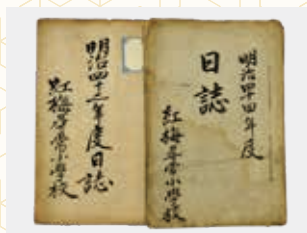 明治四十四年度
日誌
紅梅尋常小學校
明治四十三年度日誌
紅梅尋常小學校